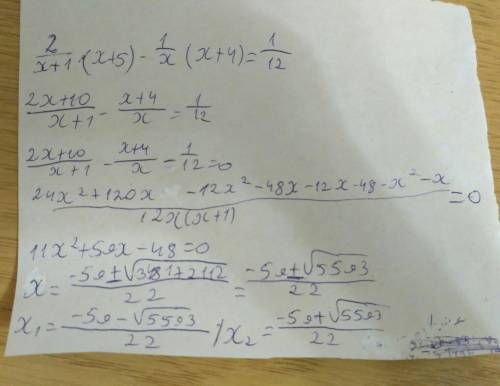 2/(x+1) · (x+5) - 1/x (x+4) = 1/12
(2x+10)/(x+1) - (x+4)/x = 1/12
(2x+10)/(x+1) - (x+4)/x - 1/12 = 0
(24x²+120x -12x²-48x-12x-48-x²-x)/(12x(x+1)) = 0
11x²+59x-48=0
x = (-59±√(3481+2112))/22 = (-59±√5593)/22
x₁ = (-59-√5593)/22 ; x₂ = (-59+√5593)/22